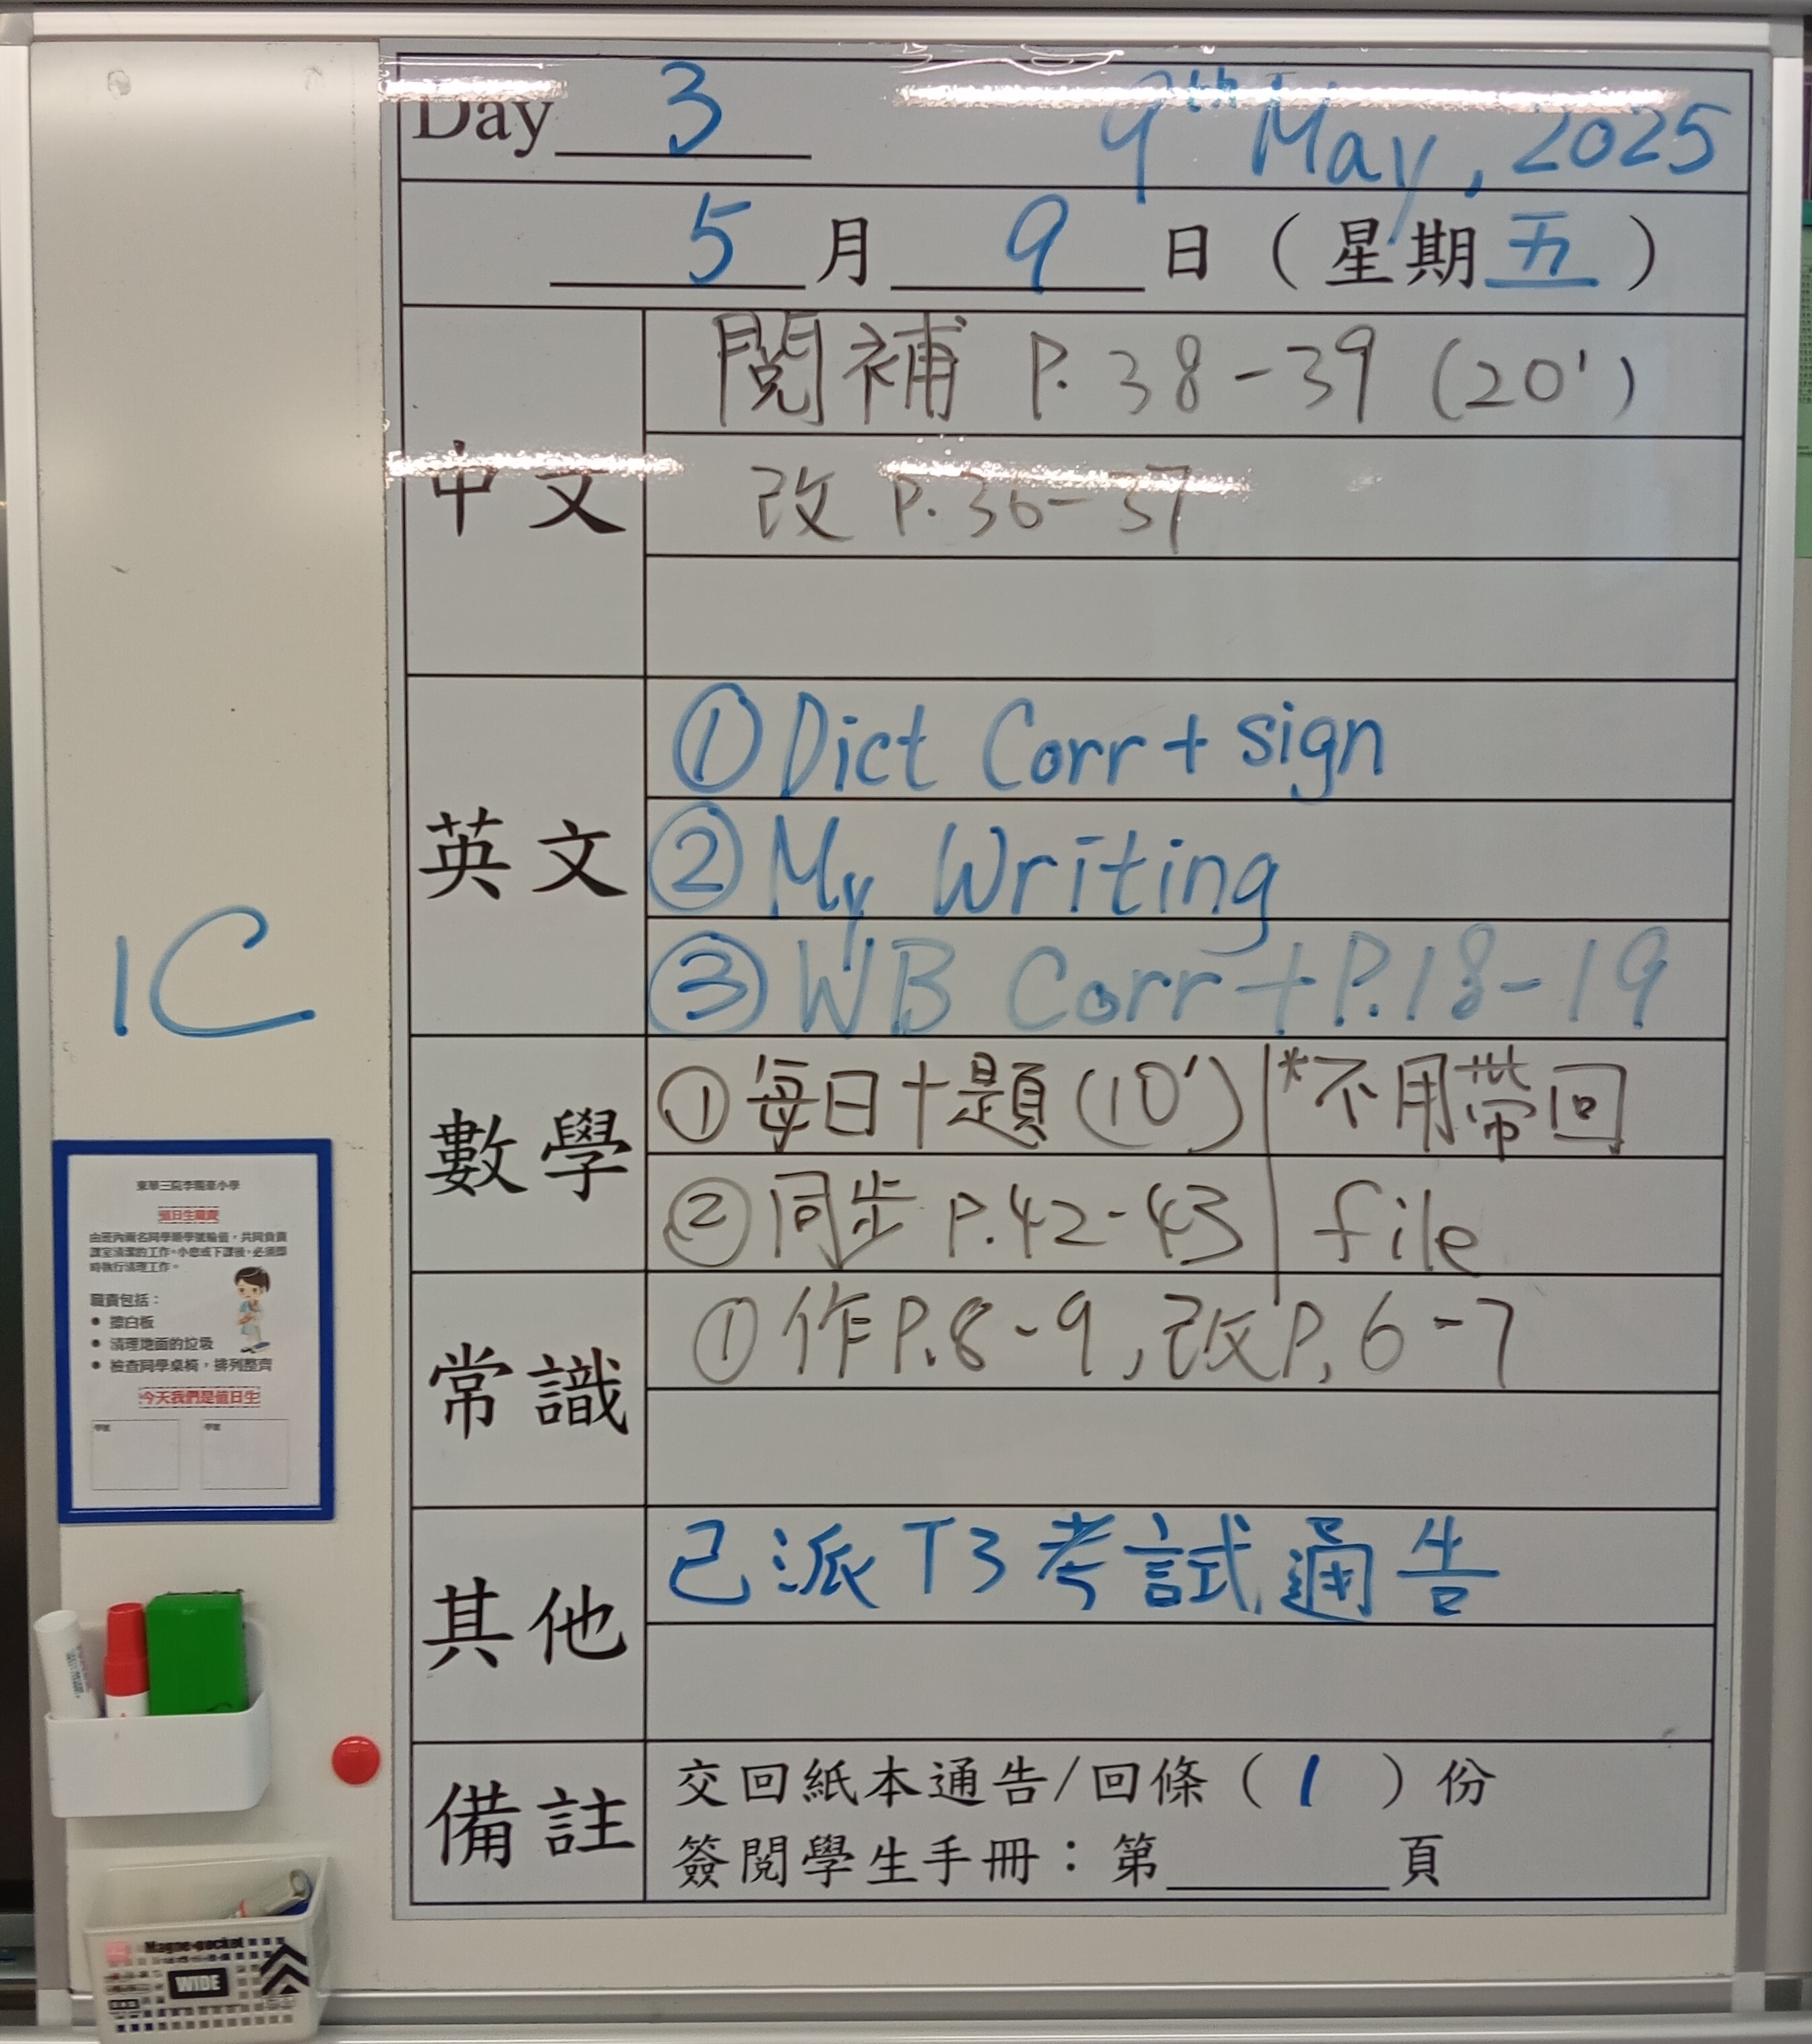 Day 3 9th May, 2025
5 月 9 日 ( 星期五 )
中文
閱補 P. 38-39 (20')
改 P.36-37
英文
① Dict Corr + sign
② My Writing
③ WB Corr + P.18-19
數學
① 每日十題 (10') | *不用帶回
② 同步 P.42-43 | file
常識
① 作P.8-9, 改P.6-7
其他
已派 T3 考試通告
備註
交回紙本通告/回條 ( 1 ) 份
簽閱學生手冊：第______頁
1C
東華三院李賜豪小學
值日生職責
由班內兩名同學順學號輪值，共同負責
課室清潔的工作。小息或下課後，必須即
時執行清理工作。
職責包括：
● 擦白板
● 清理地面的垃圾
● 檢查同學桌椅，排列整齊
今天我們是值日生
學號 學號
Magne-pocket
WIDE